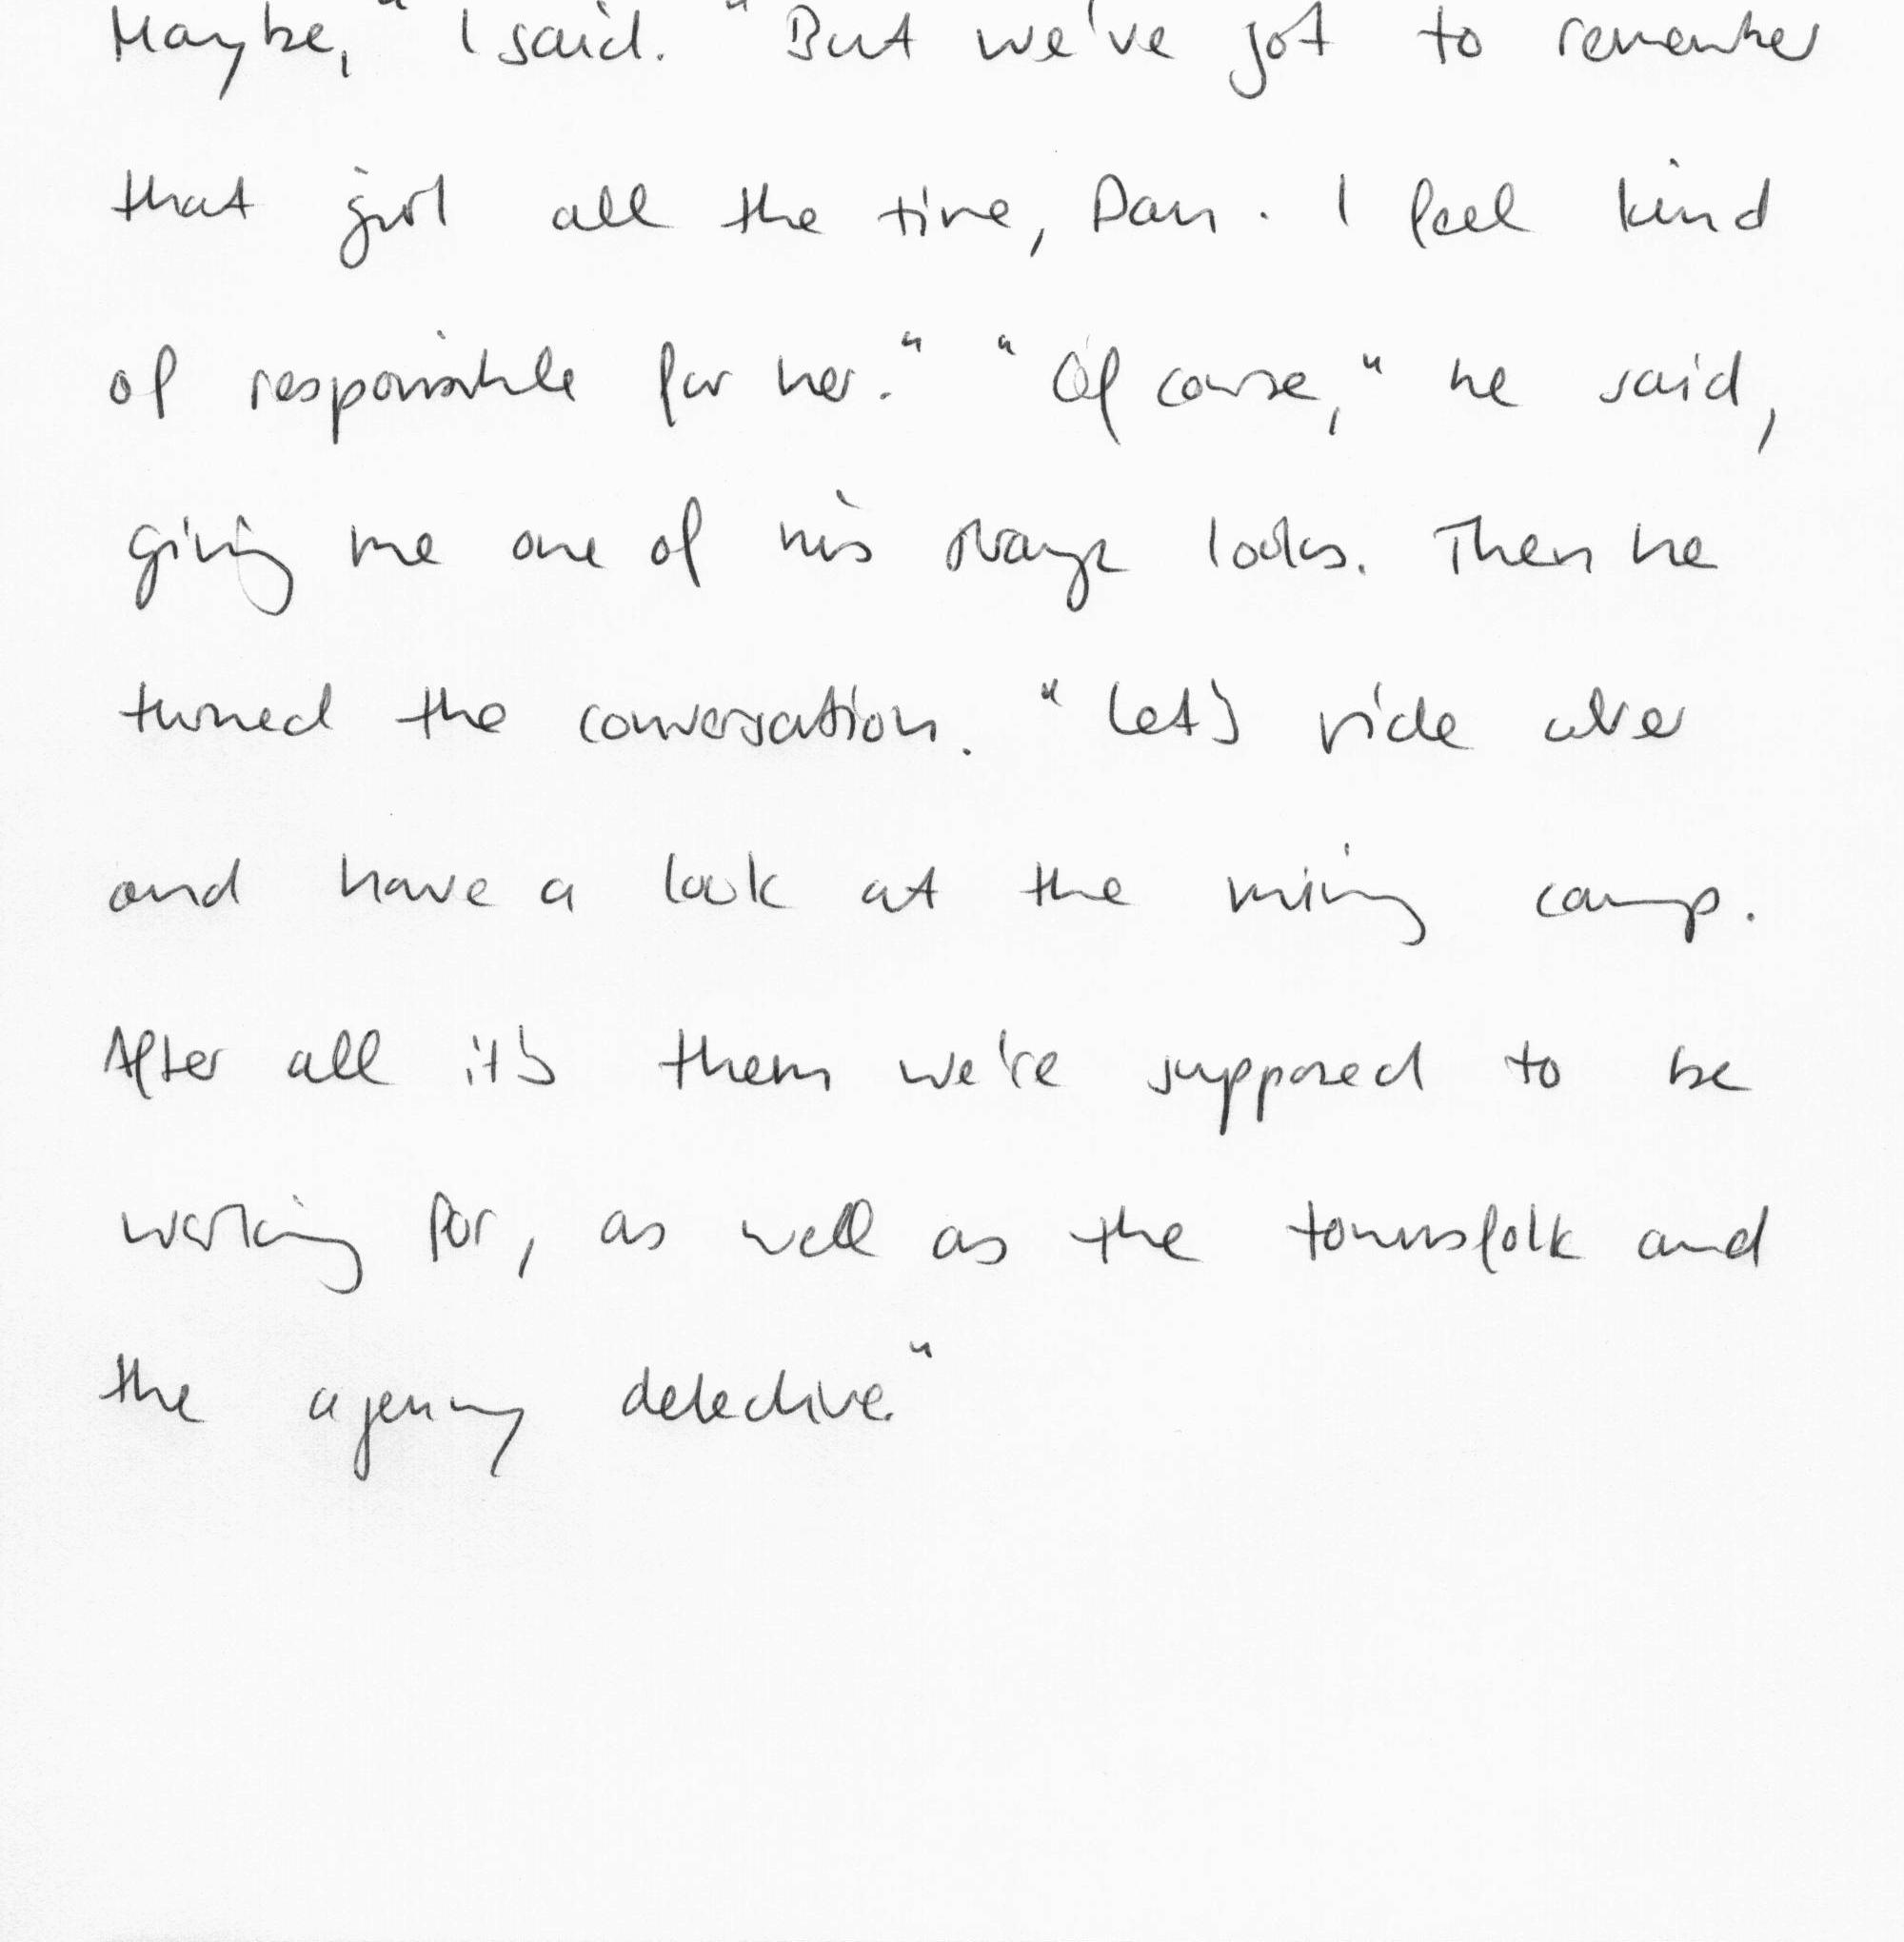 Maybe," I said. "But we've got to remember
that girl all the time, Dan. I feel kind
of responsible for her." "Of course," he said,
giving me one of his strange looks. Then he
turned the conversation. "Let's ride over
and have a look at the mining camp.
After all it's them we're supposed to be
working for, as well as the townsfolk and
the agency detective."